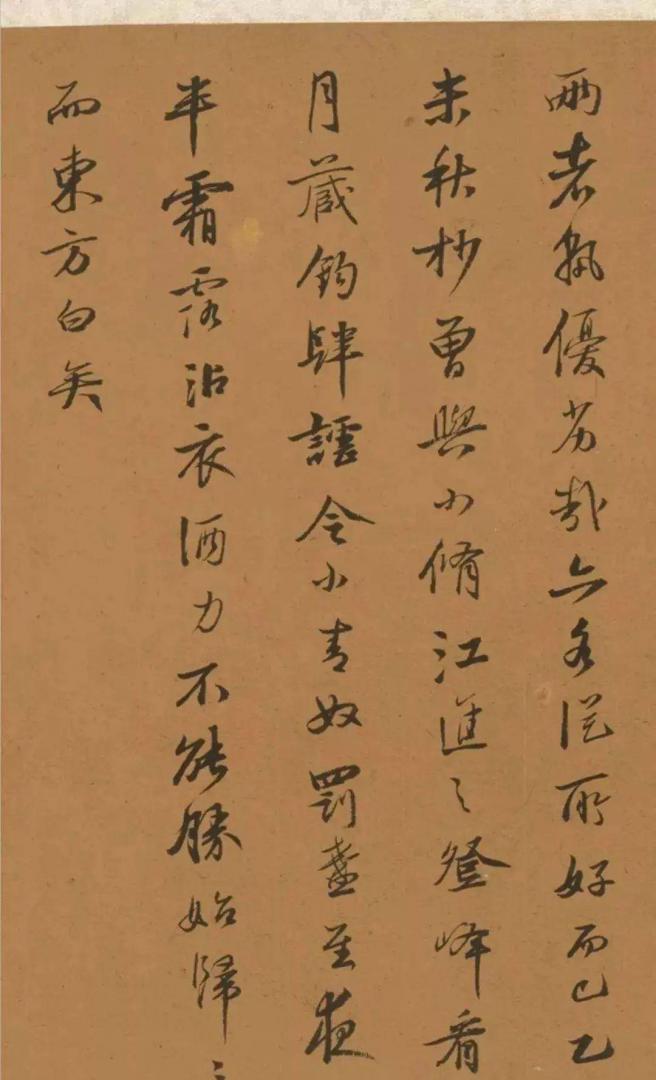 兩者孰優劣哉亦各從所好而已乙
未秋杪曾與小脩江進之登峰看
月藏鉤肆謔令小青奴罰盞至夜
半霜露沾衣酒力不能勝始歸〻
而東方白矣